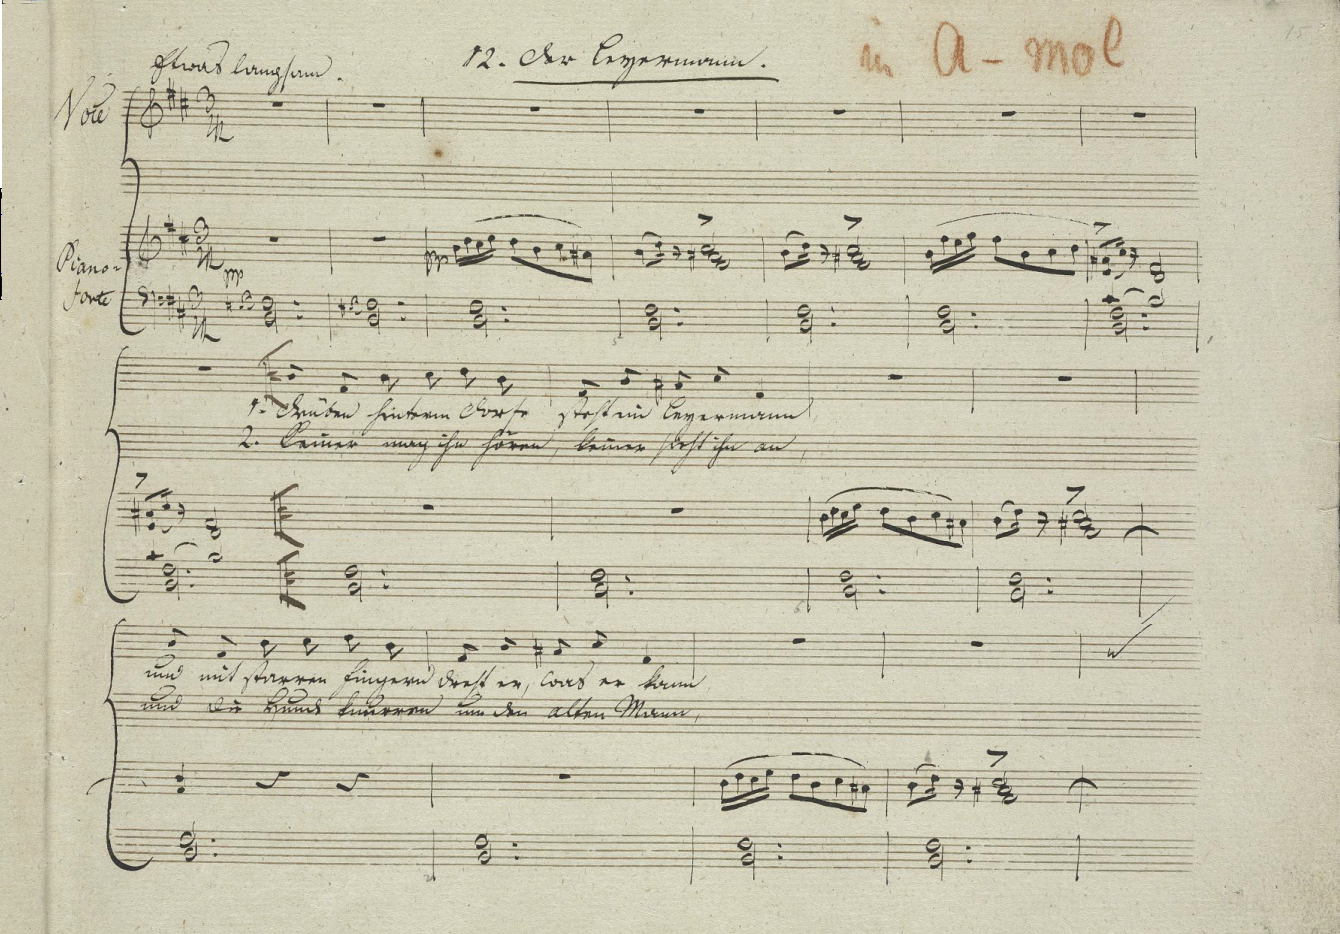 Etwas langsam. 12. Der Leyermann. in A-mol 15
Voce
pp pp
Piano-
forte
1. Drüben hinterm Dorfe steht ein Leyermann
2. Keiner mag ihn hören, keiner sieht ihn an,
und mit starren Fingern dreht er, was er kann
und die Hunde knurren um den alten Mann,